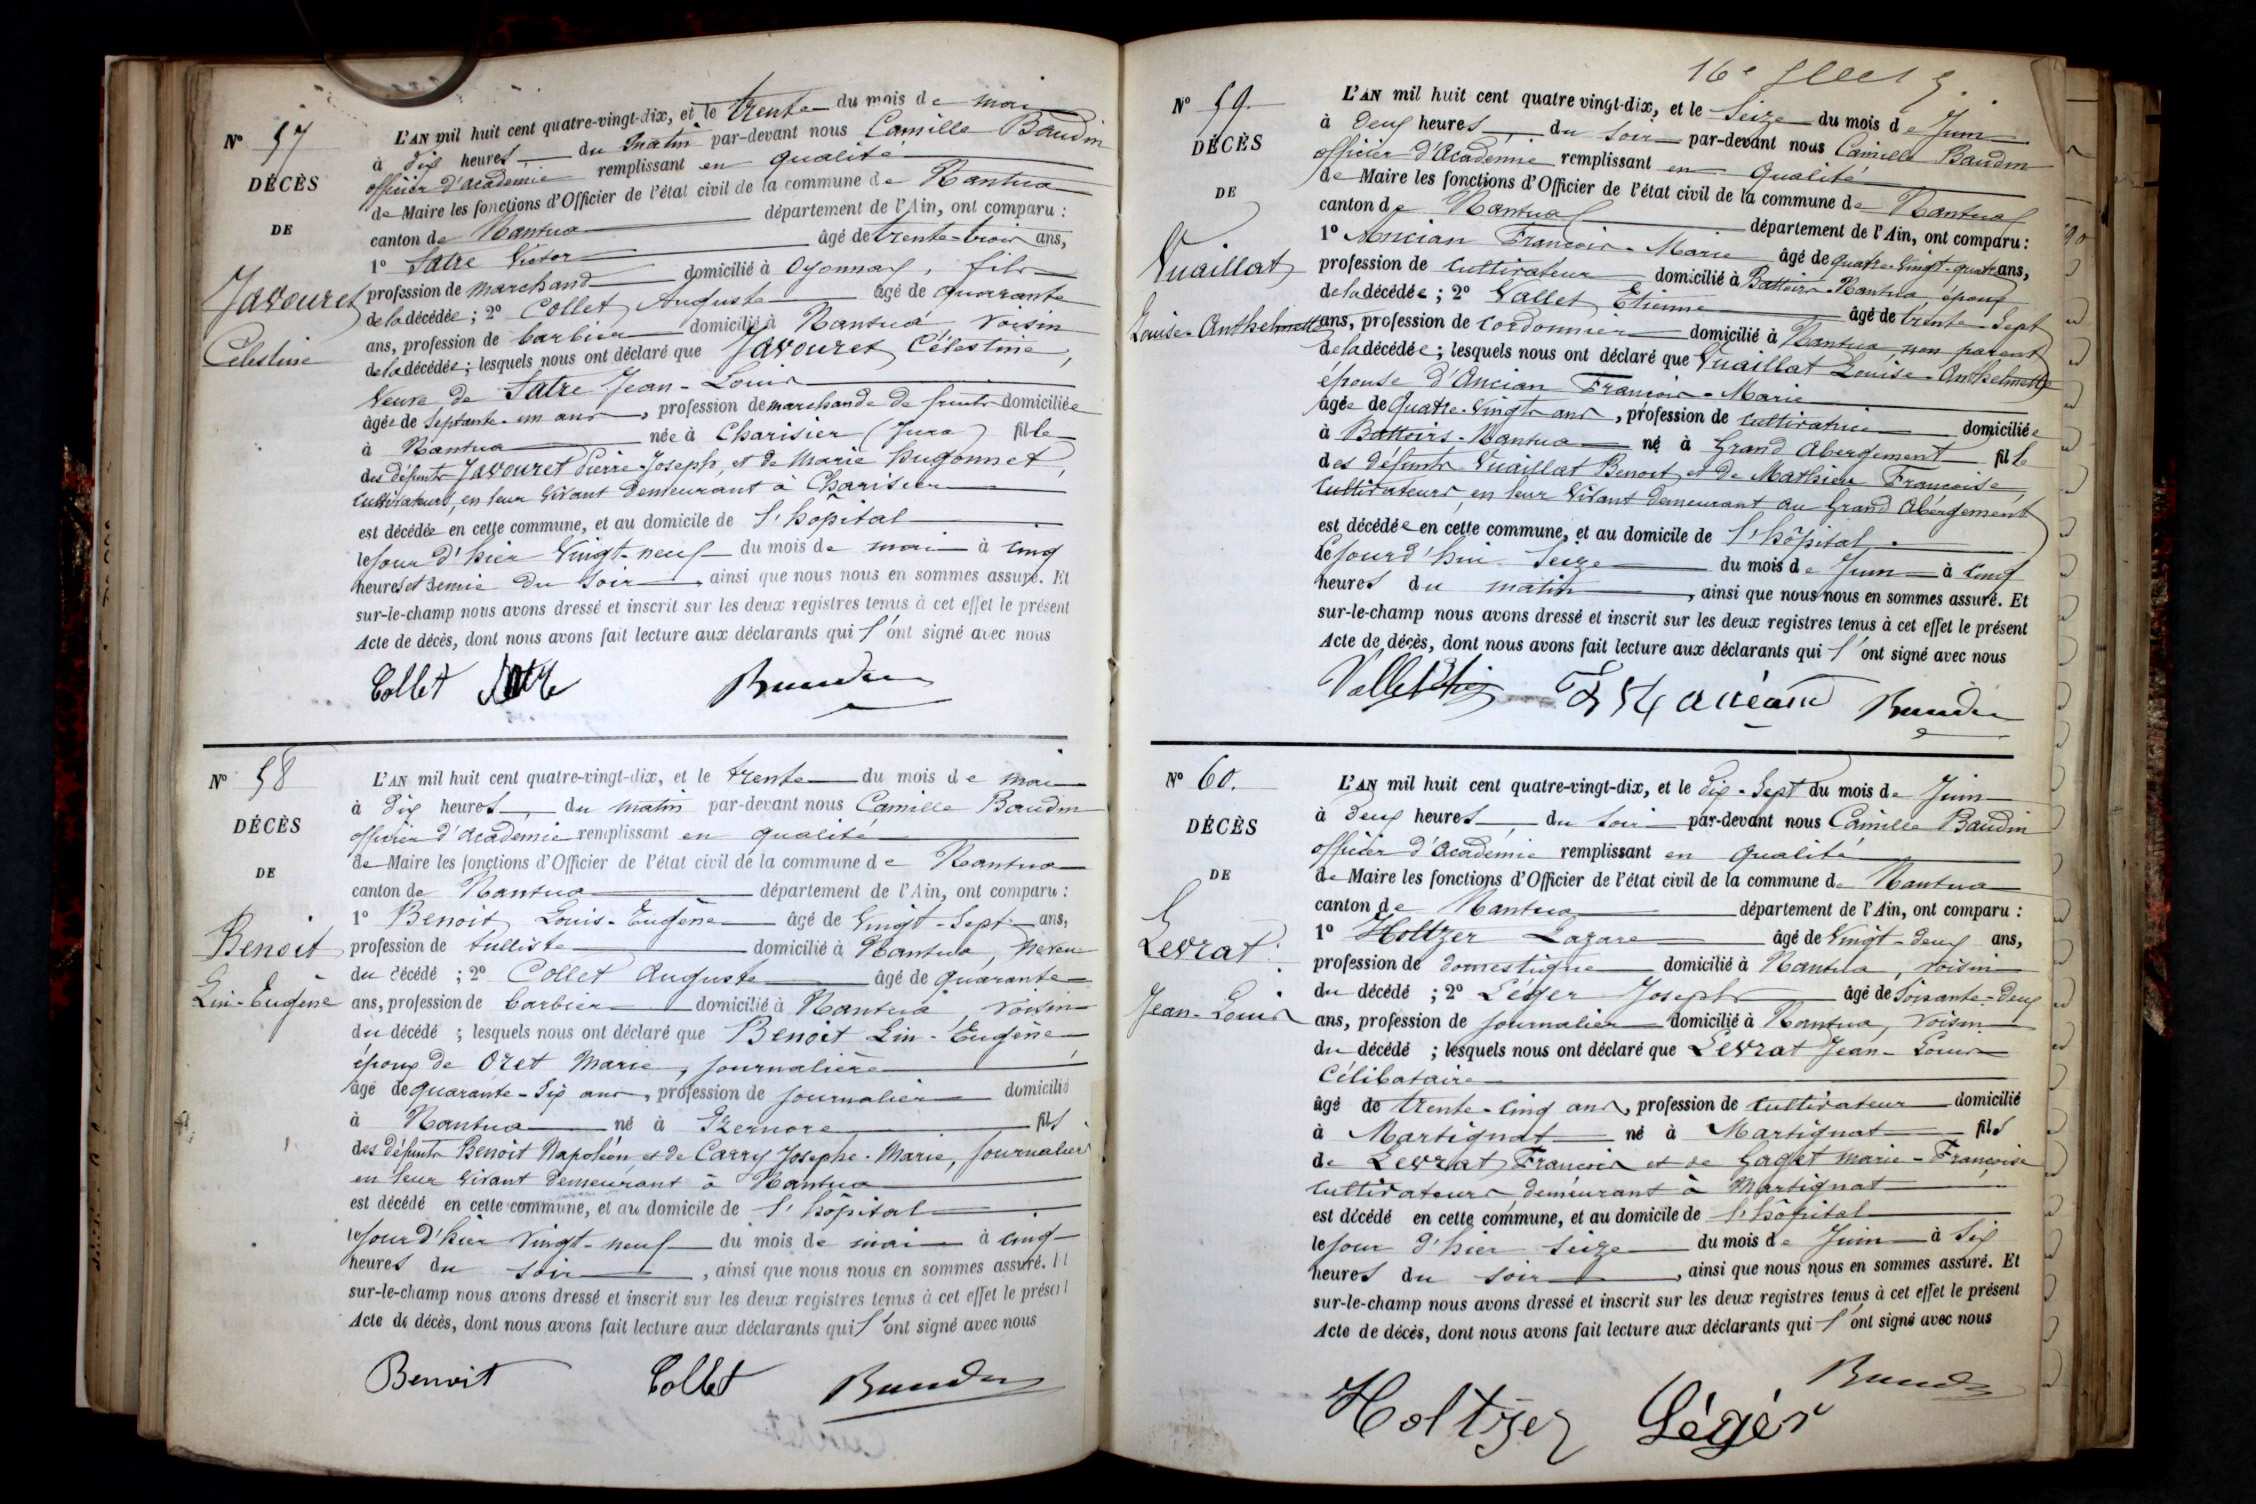 N° 57
DÉCÈS
DE
Javouret
Célestine
L'AN mil huit cent quatre-vingt-dix, et le trente du mois de mai
à dix heures du matin par-devant nous Camille Baudin
officier d'académie remplissant en qualité
de Maire les fonctions d'Officier de l'état civil de la commune de Nantua
canton de Nantua département de l'Ain, ont comparu :
1° Satre Victor âgé de trente-trois ans,
profession de marchand domicilié à Oyonnax, fils
de la décédée ; 2° Collet Auguste âgé de quarante
ans, profession de barbier domicilié à Nantua voisin
de la décédée ; lesquels nous ont déclaré que Javouret Célestine,
Veuve de Satre Jean-Louis
âgée de septante-un ans, profession de marchande de fruits domiciliée
à Nantua née à Charisier (Jura) fille
des défunts Javouret Pierre-Joseph, et de Marie Hugonnet,
cultivateurs, en leur vivant demeurant à Charisier
est décédée en cette commune, et au domicile de l'hôpital
le jour d'hier vingt-neuf du mois de mai à cinq
heures et demie du soir, ainsi que nous nous en sommes assuré. Et
sur-le-champ nous avons dressé et inscrit sur les deux registres tenus à cet effet le présent
Acte de décès, dont nous avons fait lecture aux déclarants qui l'ont signé avec nous
Collet Satre Baudin
N° 58
DÉCÈS
DE
Benoit
Lin-Eugène
L'AN mil huit cent quatre-vingt-dix, et le trente du mois de mai
à dix heures, du matin par-devant nous Camille Baudin
officier d'académie remplissant en qualité
de Maire les fonctions d'Officier de l'état civil de la commune de Nantua
canton de Nantua département de l'Ain, ont comparu :
1° Benoit Louis-Eugène âgé de vingt-sept ans,
profession de tulliste domicilié à Nantua, neveu
du décédé ; 2° Collet Auguste âgé de quarante
ans, profession de barbier domicilié à Nantua voisin
du décédé ; lesquels nous ont déclaré que Benoit Lin-Eugène
époux de Oret Marie, journalière
âgé de quarante-six ans, profession de journalier domicilié
à Nantua né à Izernore fils
des défunts Benoit Napoléon et de Carry Josephe-Marie, journaliers
en leur vivant demeurant à Nantua
est décédé en cette commune, et au domicile de l'hôpital
le jour d'hier vingt-neuf du mois de mai à cinq
heures du soir, ainsi que nous nous en sommes assuré. Et
sur-le-champ nous avons dressé et inscrit sur les deux registres tenus à cet effet le présent
Acte de décès, dont nous avons fait lecture aux déclarants qui l'ont signé avec nous
Benoit Collet Baudin
16e
N° 59
DÉCÈS
DE
Vuaillat
Louise-Anthelmette
L'AN mil huit cent quatre vingt-dix, et le seize du mois de Juin
à deux heures, du soir par-devant nous Camille Baudin
officier d'Académie remplissant en qualité
de Maire les fonctions d'Officier de l'état civil de la commune de Nantua
canton de Nantua département de l'Ain, ont comparu :
1° Ancian François-Marie âgé de quatre-vingt-quatre ans,
profession de cultivateur domicilié à Battoirs-Nantua, époux
de la décédée ; 2° Vallet Etienne âgé de trente-sept
ans, profession de cordonnier domicilié à Nantua, non parent
de la décédée ; lesquels nous ont déclaré que Vuaillat Louise-Anthelmette
épouse d'Ancian François-Marie
âgée de quatre-vingts ans, profession de cultivatrice domiciliée
à Battoirs-Nantua né à Grand Abergement fille
des défunts Vuaillat Benoit et de Mathieu Françoise,
cultivateurs, en leur vivant demeurant au Grand Abergement
est décédée en cette commune, et au domicile de l'hôpital.
le jour d'hui seize du mois de Juin à cinq
heures du matin, ainsi que nous nous en sommes assuré. Et
sur-le-champ nous avons dressé et inscrit sur les deux registres tenus à cet effet le présent
Acte de décès, dont nous avons fait lecture aux déclarants qui l'ont signé avec nous
Baudin
N° 60.
DÉCÈS
DE
Levrat
Jean-Louis
L'AN mil huit cent quatre-vingt-dix, et le dix-sept du mois de Juin
à deux heures, du soir par-devant nous Camille Baudin
officier d'académie remplissant en qualité
de Maire les fonctions d'Officier de l'état civil de la commune de Nantua
canton de Nantua département de l'Ain, ont comparu :
1° Holtzer Lazare âgé de vingt-deux ans,
profession de domestique domicilié à Nantua, voisin
du décédé ; 2° Léger Joseph âgé de soixante-deux
ans, profession de journalier domicilié à Nantua, voisin
du décédé ; lesquels nous ont déclaré que Levrat Jean-Louis
célibataire
âgé de trente-cinq ans, profession de cultivateur domicilié
à Martignat né à Martignat fils
de Levrat François et de Gaget Marie-Françoise
cultivateurs demeurant à Martignat
est décédé en cette commune, et au domicile de l'hôpital
le jour d'hier seize du mois de Juin à six
heures du soir, ainsi que nous nous en sommes assuré. Et
sur-le-champ nous avons dressé et inscrit sur les deux registres tenus à cet effet le présent
Acte de décès, dont nous avons fait lecture aux déclarants qui l'ont signé avec nous
Baudin
Holtzer Légér